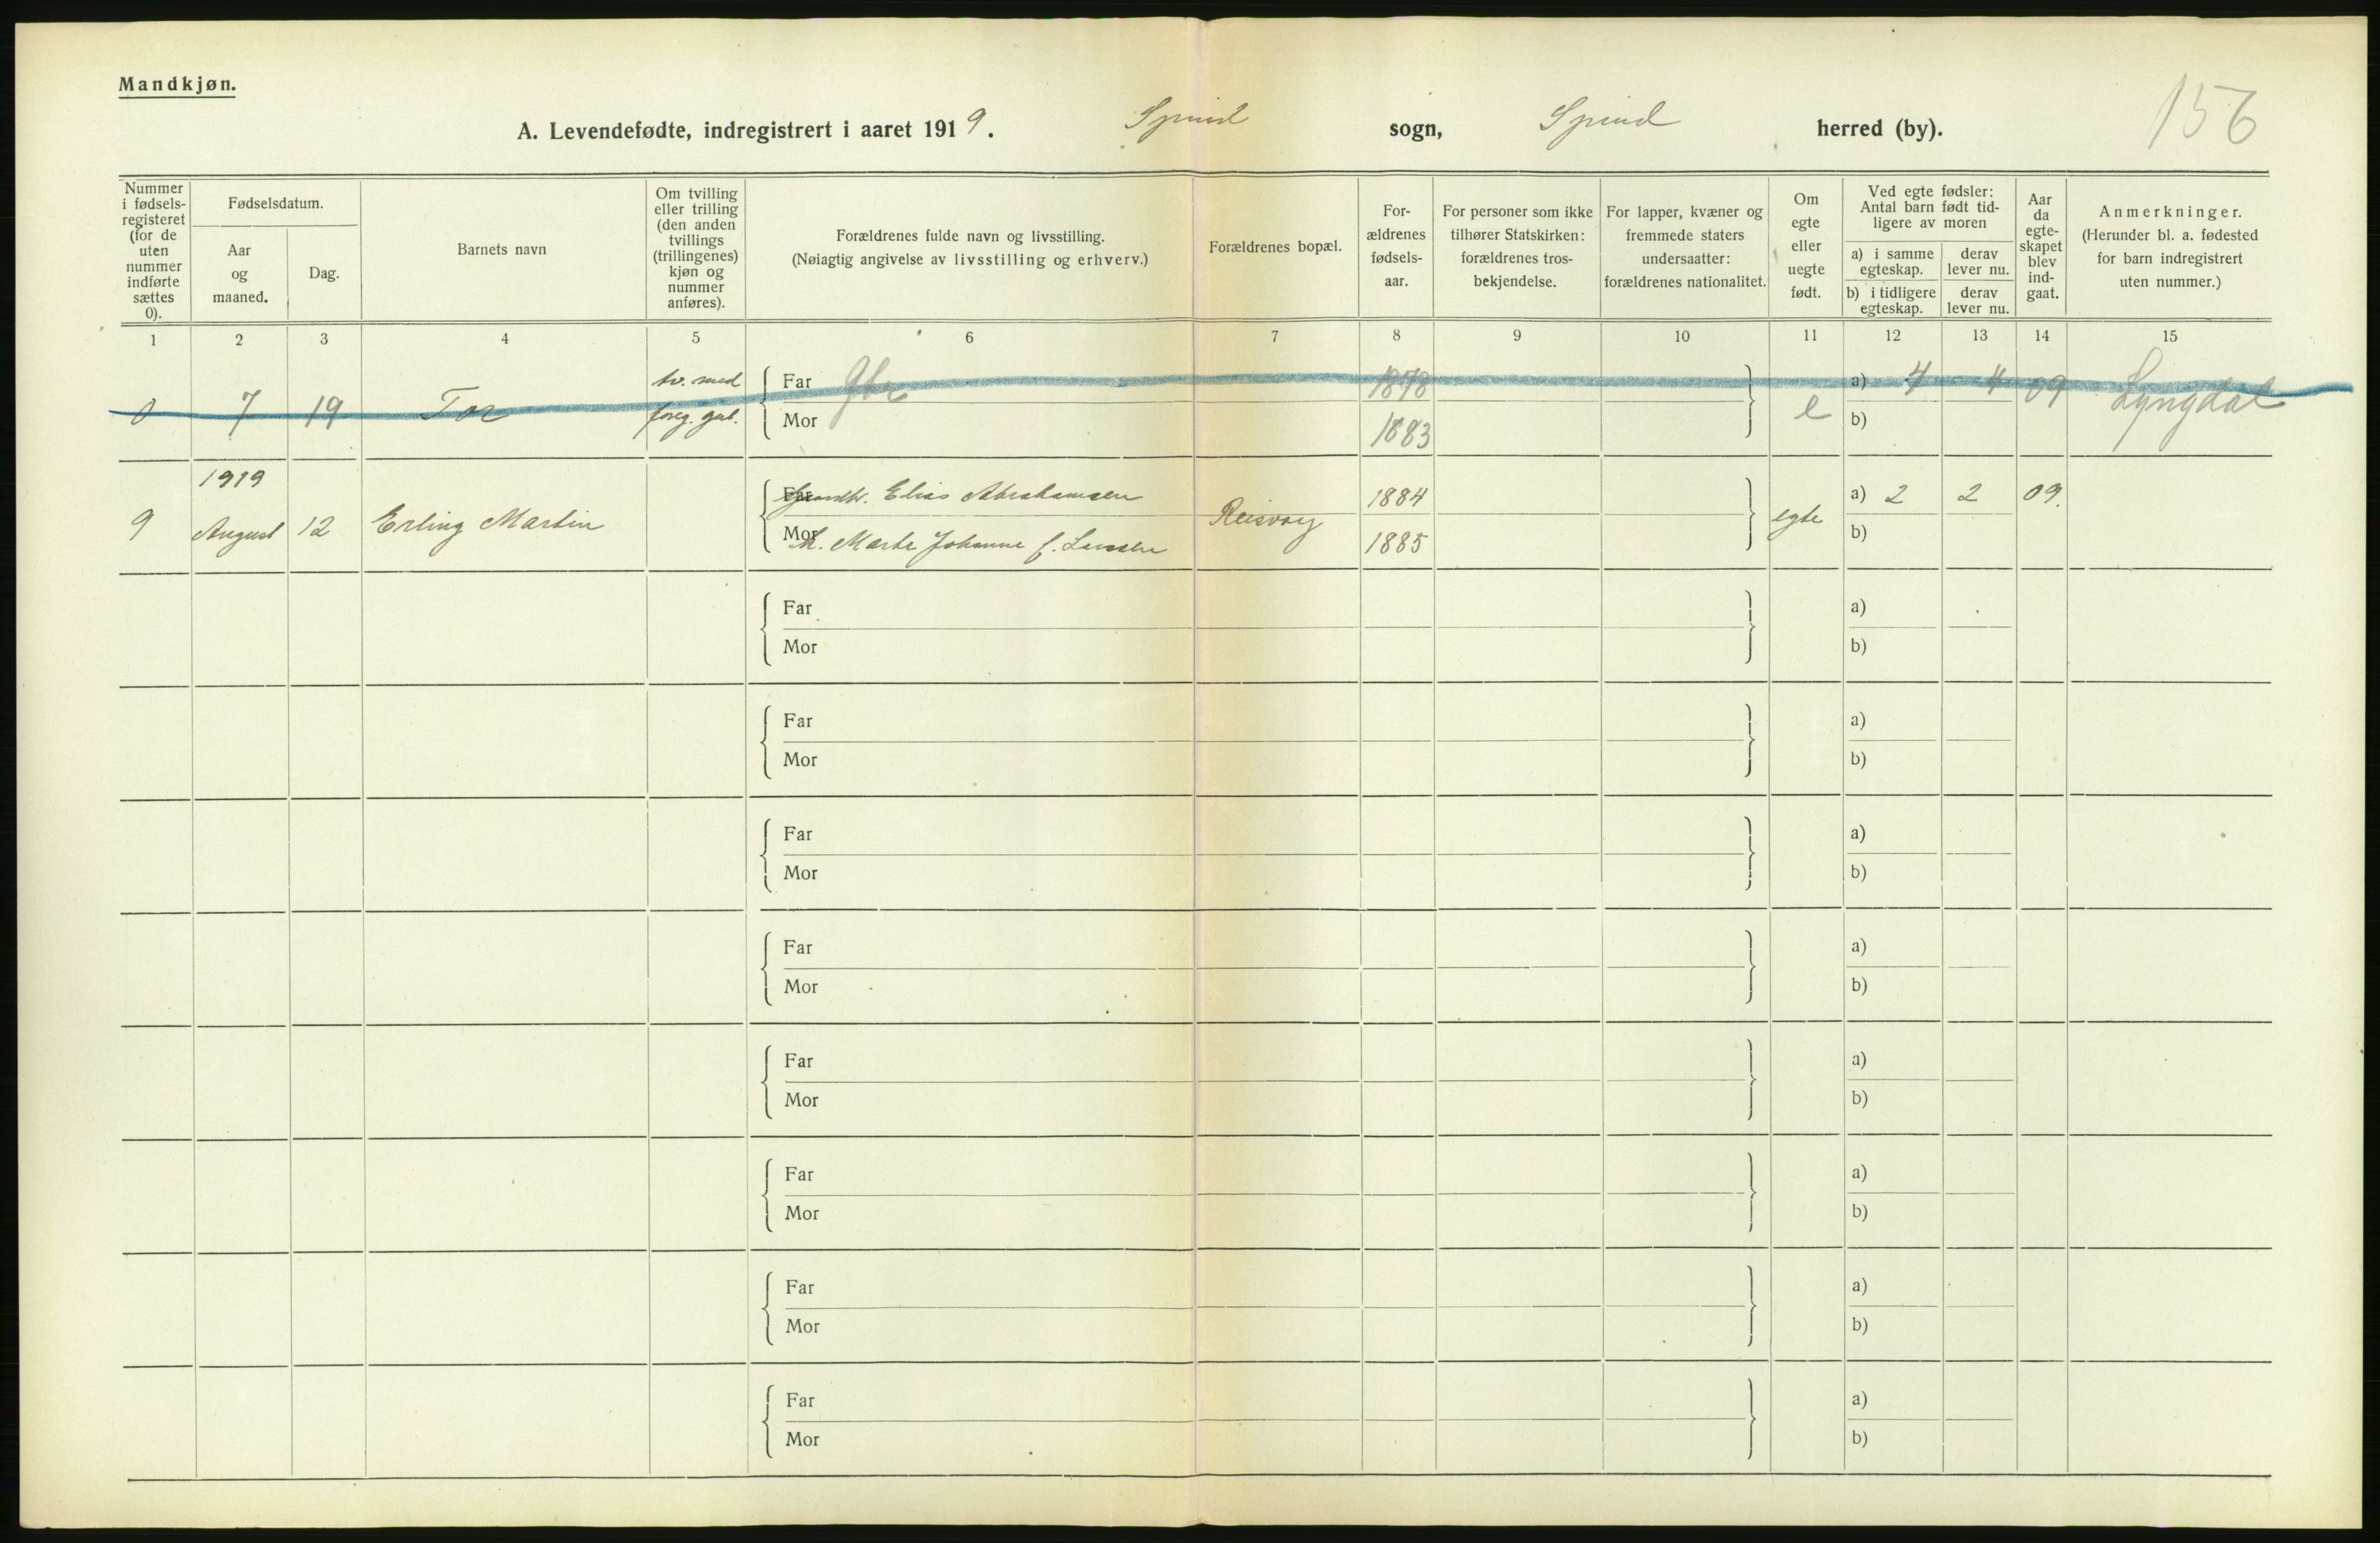 Mandkjøn.
A. Levendefødte, indregistrert i aaret 1919. Spind sogn, Spind herred (by). 156
Nummer i fødsels-registeret (for de uten nummer indførte sættes 0).
Fødselsdatum.
Aar og maaned.
Dag.
Barnets navn
Om tvilling eller trilling (den anden tvillings (trillingenes) kjøn og nummer anføres).
Forældrenes fulde navn og livsstilling.
(Nøiagtig angivelse av livsstilling og erhverv.)
Forældrenes bopæl.
For-ældrenes fødsels-aar.
For personer som ikke tilhører Statskirken: forældrenes tros-bekjendelse.
For lapper, kvæner og fremmede staters undersaatter: forældrenes nationalitet.
Om egte eller uegte født.
Ved egte fødsler: Antal barn født tid-ligere av moren
a) i samme egteskap. derav lever nu.
b) i tidligere egteskap. derav lever nu.
Aar da egte-skapet blev ind-gaat.
Anmerkninger.
(Herunder bl. a. fødested for barn indregistrert uten nummer.)
1 2 3 4 5 6 7 8 9 10 11 12 13 14 15
0 7 19 Tor tv. med
Far Gbr 1878 a) 4 4 09 Lyngdal
Mor 1883 e b)
1919
9 August 12 Erling Martin
Far Elias Abrahamsen 1884 egte a) 2 2 09.
Mor Marte Johanne f. 1885 b)
Far a)
Mor b)
Far a)
Mor b)
Far a)
Mor b)
Far a)
Mor b)
Far a)
Mor b)
Far a)
Mor b)
Far a)
Mor b)
Far a)
Mor b)